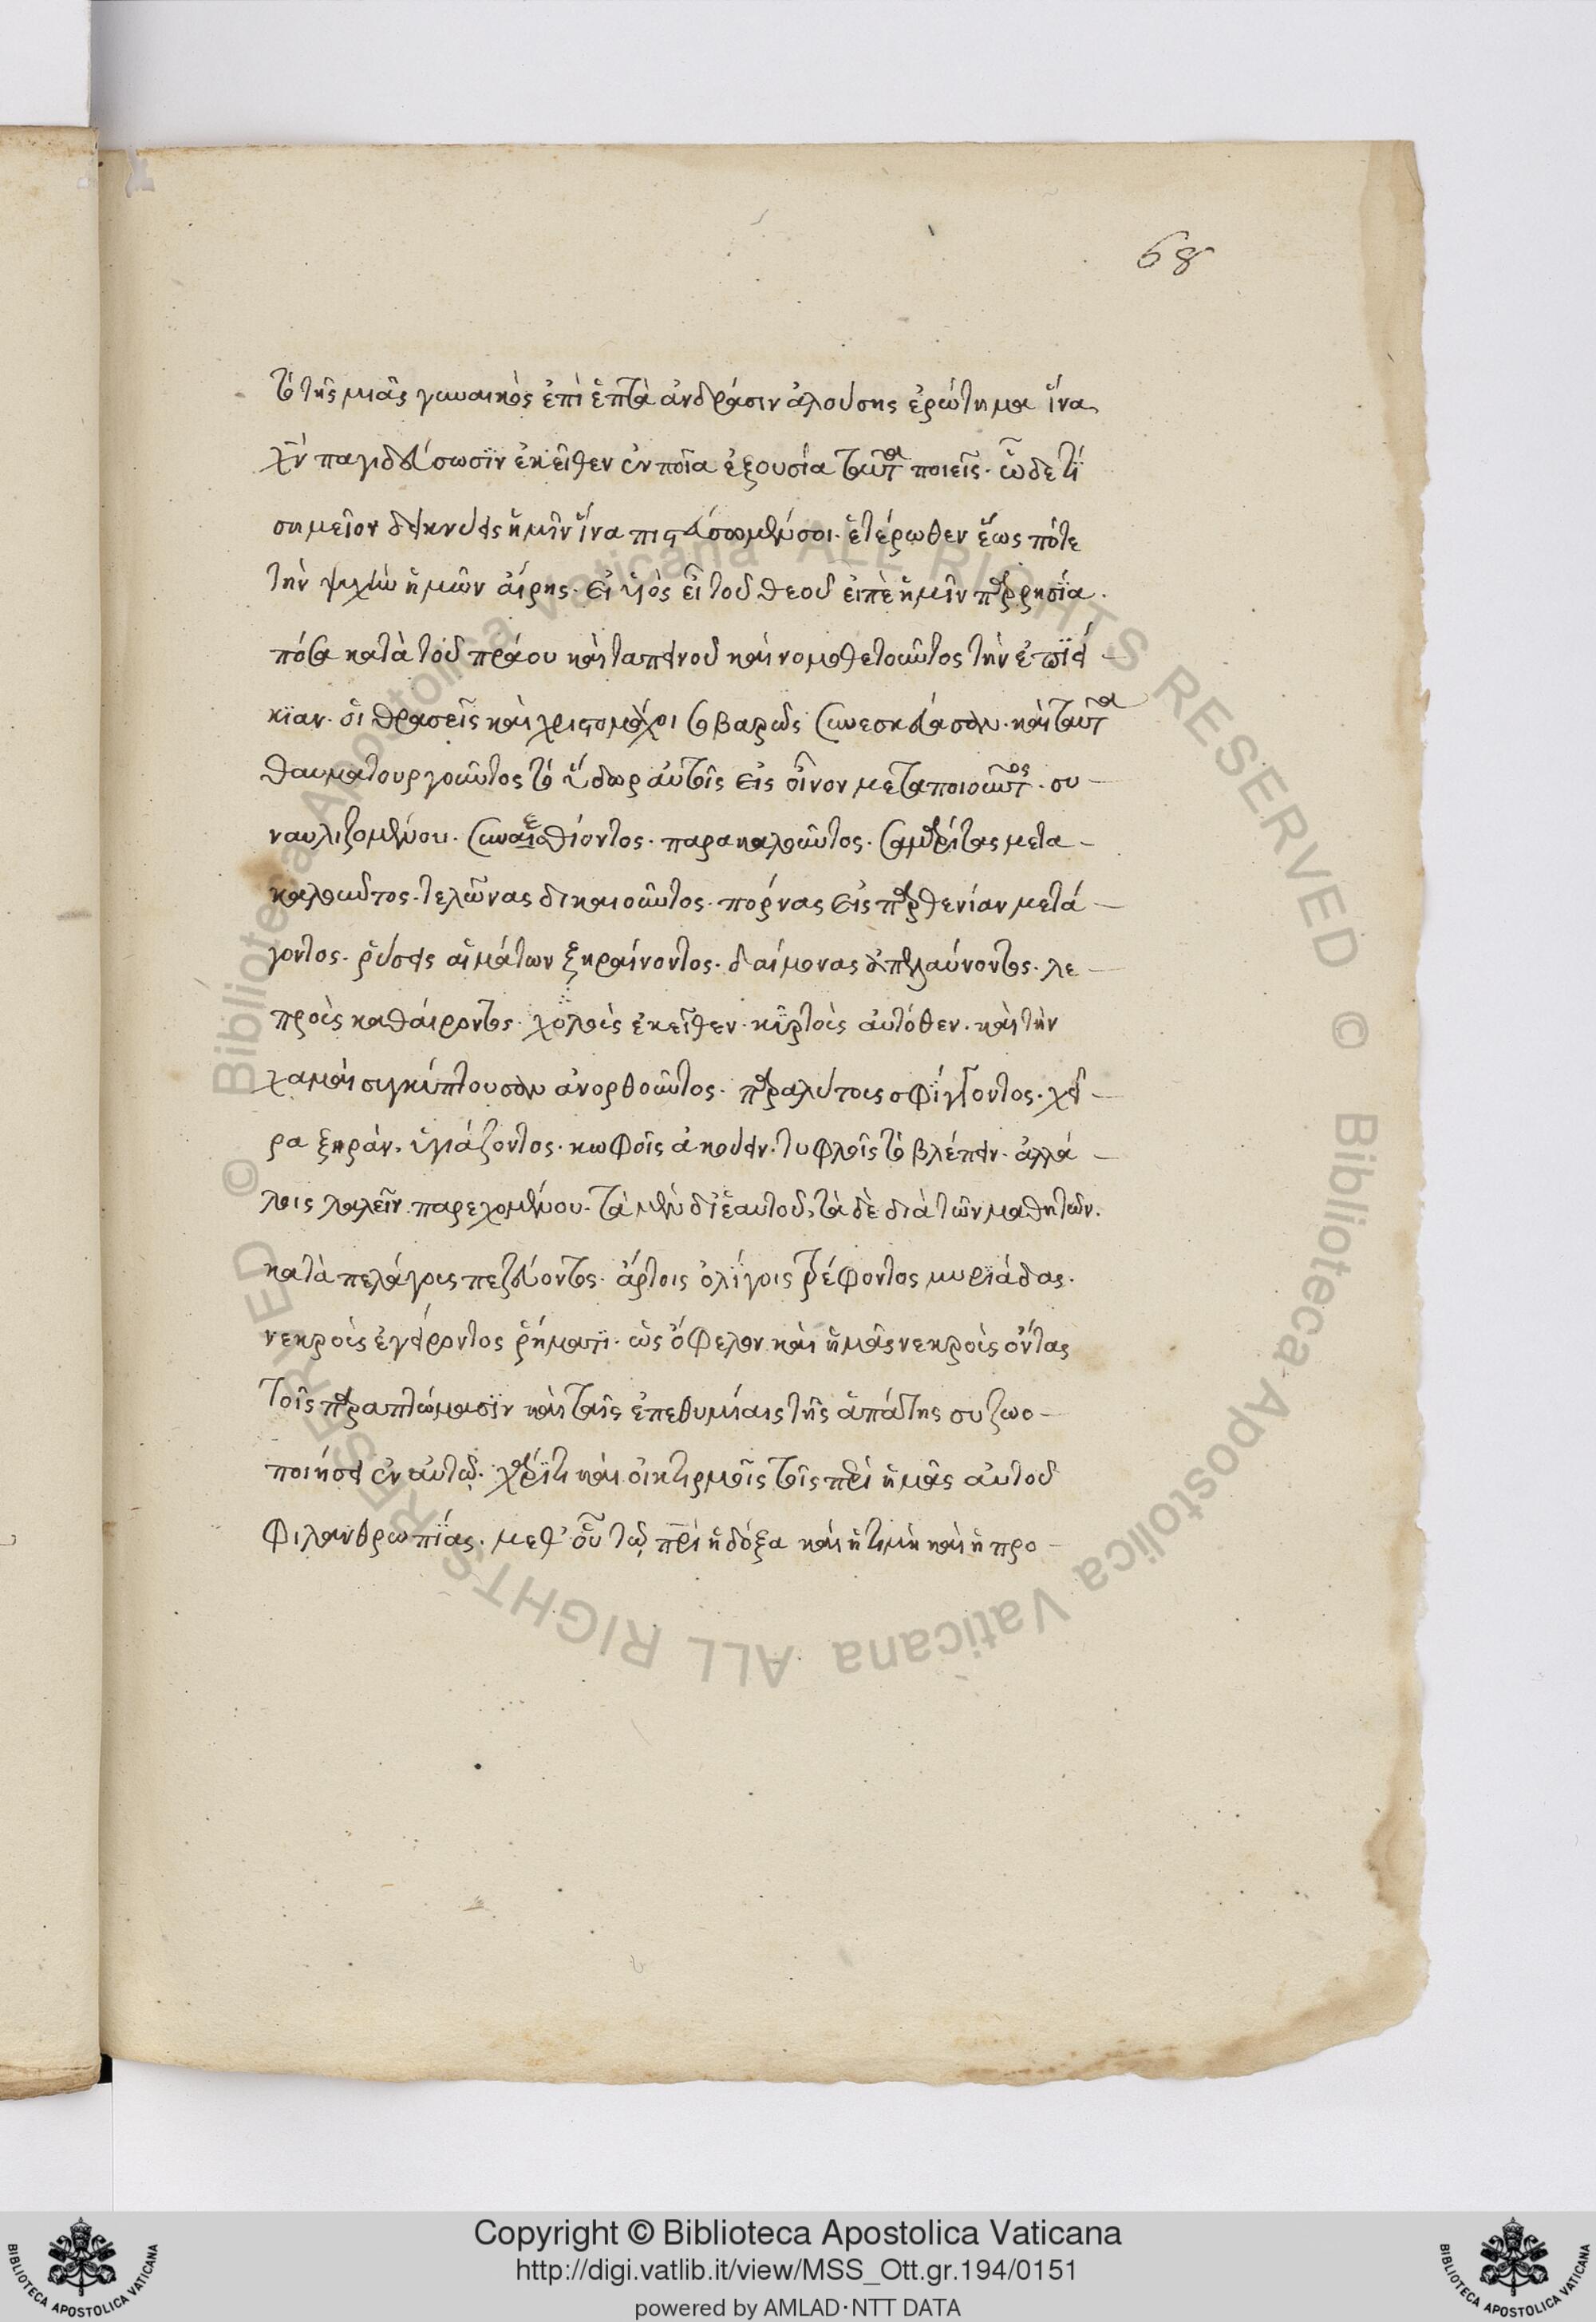 68
τὸ τῆς μιᾶς γυναικὸς ἐπὶ ἑπτὰ ἀνδράσιν ἁλούσης ἐρώτημα ἵνα
χν παγιδεύσωσϊν ἐκεῖθεν ἐν ποῖα ἐξουσία ταῦτα ποιεῖς· ὧδε τί
σημεῖον δεικνύεις ἡμῖν ἵνα πιστεύσωμέν σοι· ἑτέρωθεν ἕως πότε
τὴν ψυχὴν ἡμῶν αἴρης· εἰ υἱὸς εἶ τοῦ θεοῦ εἰπὲ ἡμῖν παρρησία·
πόσα κατὰ τοῦ πράου καὶ ταπεινοῦ καὶ νομοθετοῦντος τὴν ἐπϊεί-
κϊαν· οἱ θρασεῖς καὶ χριστομάχοι σοβαρῶς συνεσκεύασαν· καὶ ταῦτα
θαυματουργοῦντος τὸ ὕδωρ αὐτοῖς εἰς οἶνον μεταποιοῦντος· συ-
ναυλιζομένου· συναεσθίοντος· παρακαλοῦντος· σαμαρείτας μετα-
καλοῦντος· τελώνας δικαιοῦντος· πόρνας εἰς παρθενίαν μετά-
γοντος· ῥύσεις αἱμάτων ξηραίνοντος· δαίμονας ἀπελαύνοντος· λε-
προὺς καθαίροντος· χολοὺς ἐκεῖθεν· κϋρτοὺς αὐτόθεν· καὶ τὴν
χαμαὶ συγκύπτουσαν ἀνορθοῦντος· παραλύτους σφίγγοντος· χεῖ-
ρα ξηρὰν· ὑγιάζοντος· κωφοῖς ἀκούειν· τυφλοῖς τὸ βλέπειν· ἀλλά-
λοις λαλεῖν παρεχομένου· τὰ μὲν δι' ἑαυτοῦ, τὰ δὲ διὰ τῶν μαθητῶν.
κατὰ πελάγους πεζεύοντος· ἄρτοις ὀλίγοις τρέφοντος μυριάδας·
νεκροὺς ἐγείροντος ῥήματϊ· ὡς ὄφελον καὶ ἡμᾶς νεκροὺς ὄντας
τοῖς παραπτώμασϊν καὶ ταῖς ἐπεθυμίαις τῆς ἀπάτης συζωο-
ποιήσει ἐν αὐτῷ· χάρϊτι καὶ οἰκτιρμοῖς τοῖς περὶ ἡμᾶς αὐτοῦ
φιλανθρωπίας· μεθ' οὗ τῷ πρὶ ἡ δόξα καὶ ἡ τιμὴ καὶ ἡ προ-
Copyright © Biblioteca Apostolica Vaticana
http://digi.vatlib.it/view/MSS_Ott.gr.194/0151
powered by AMLAD·NTT DATA
BIBLIOTECA APOSTOLICA VATICANA
BIBLIOTECA APOSTOLICA VATICANA
© Biblioteca Apostolica Vaticana ALL RIGHTS RESERVED
© Biblioteca Apostolica Vaticana ALL RIGHTS RESERVED